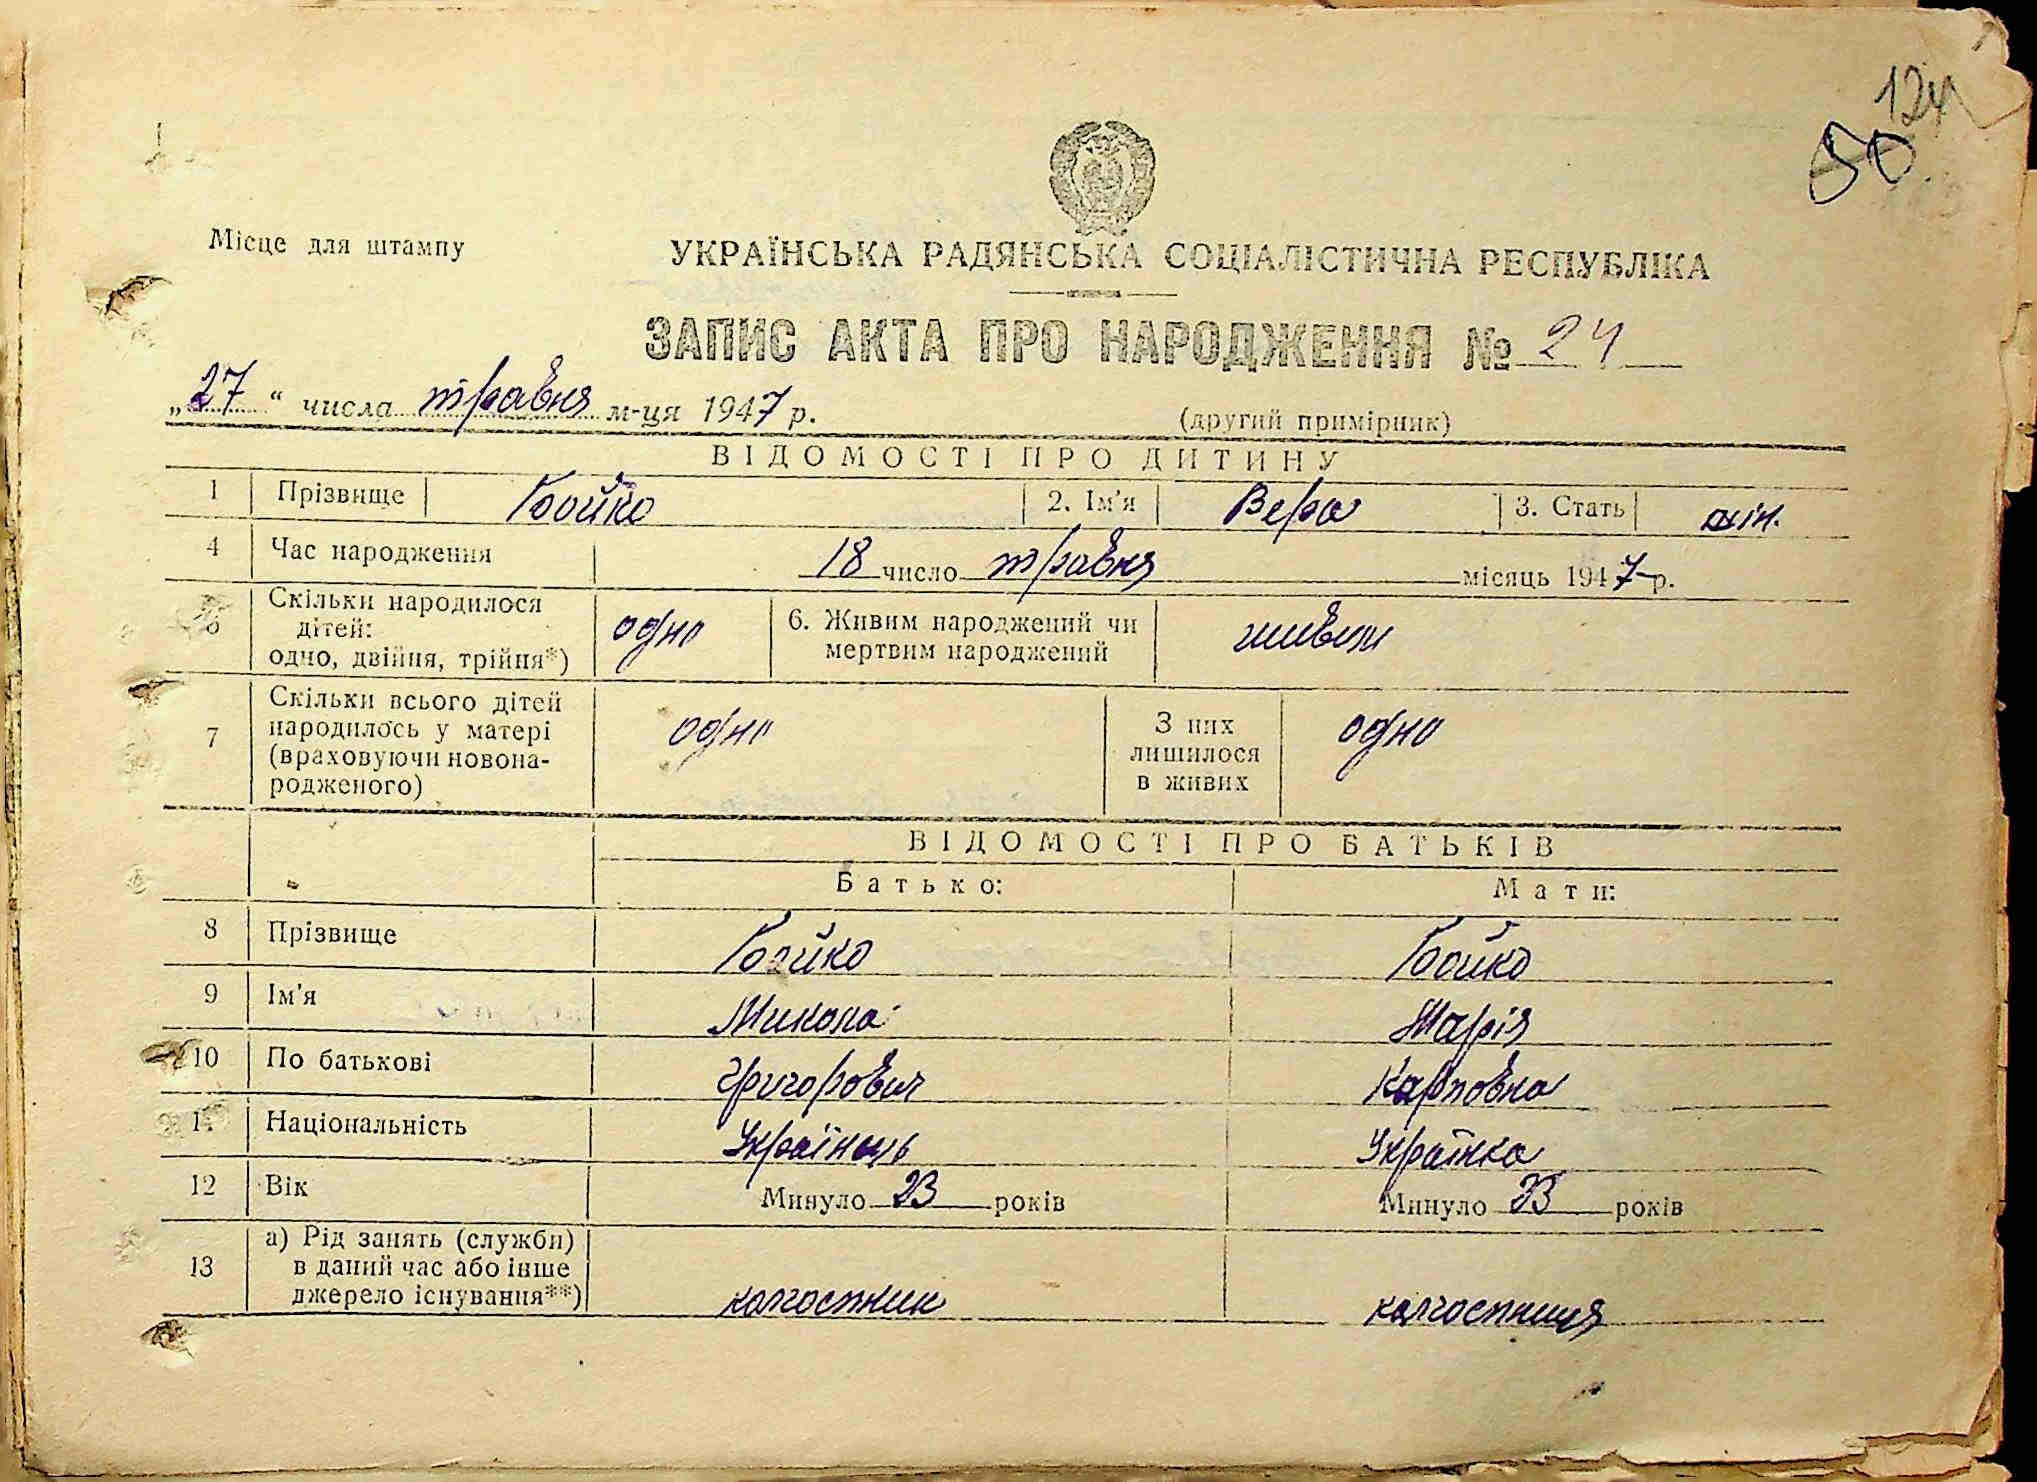 50
Місце для штампу
УКРАЇНСЬКА РАДЯНСЬКА СОЦІАЛІСТИЧНА РЕСПУБЛІКА
ЗАПИС АКТА ПРО НАРОДЖЕННЯ № 24
„27“ числа травня м-ця 1947 р.
(другий примірник)
ВІДОМОСТІ ПРО ДИТИНУ
1 Прізвище Бойко 2. Ім'я Вера 3. Стать жін.
4 Час народження 18 число травня місяць 1947 р.
Скільки народилося
дітей:
одно, двійня, трійня*) одно 6. Живим народжений чи
мертвим народжений живим
7 Скільки всього дітей
народилось у матері
(враховуючи новона-
родженого) одно З них
лишилося
в живих одно
ВІДОМОСТІ ПРО БАТЬКІВ
Батько: Мати:
8 Прізвище Бойко Бойко
9 Ім'я Микола Марія
10 По батькові Григорович Карповна
11 Національність Українець Українка
12 Вік Минуло 23 років Минуло 23 років
13 а) Рід занять (служби)
в даний час або інше
джерело існування**) колгоспник колгоспниця